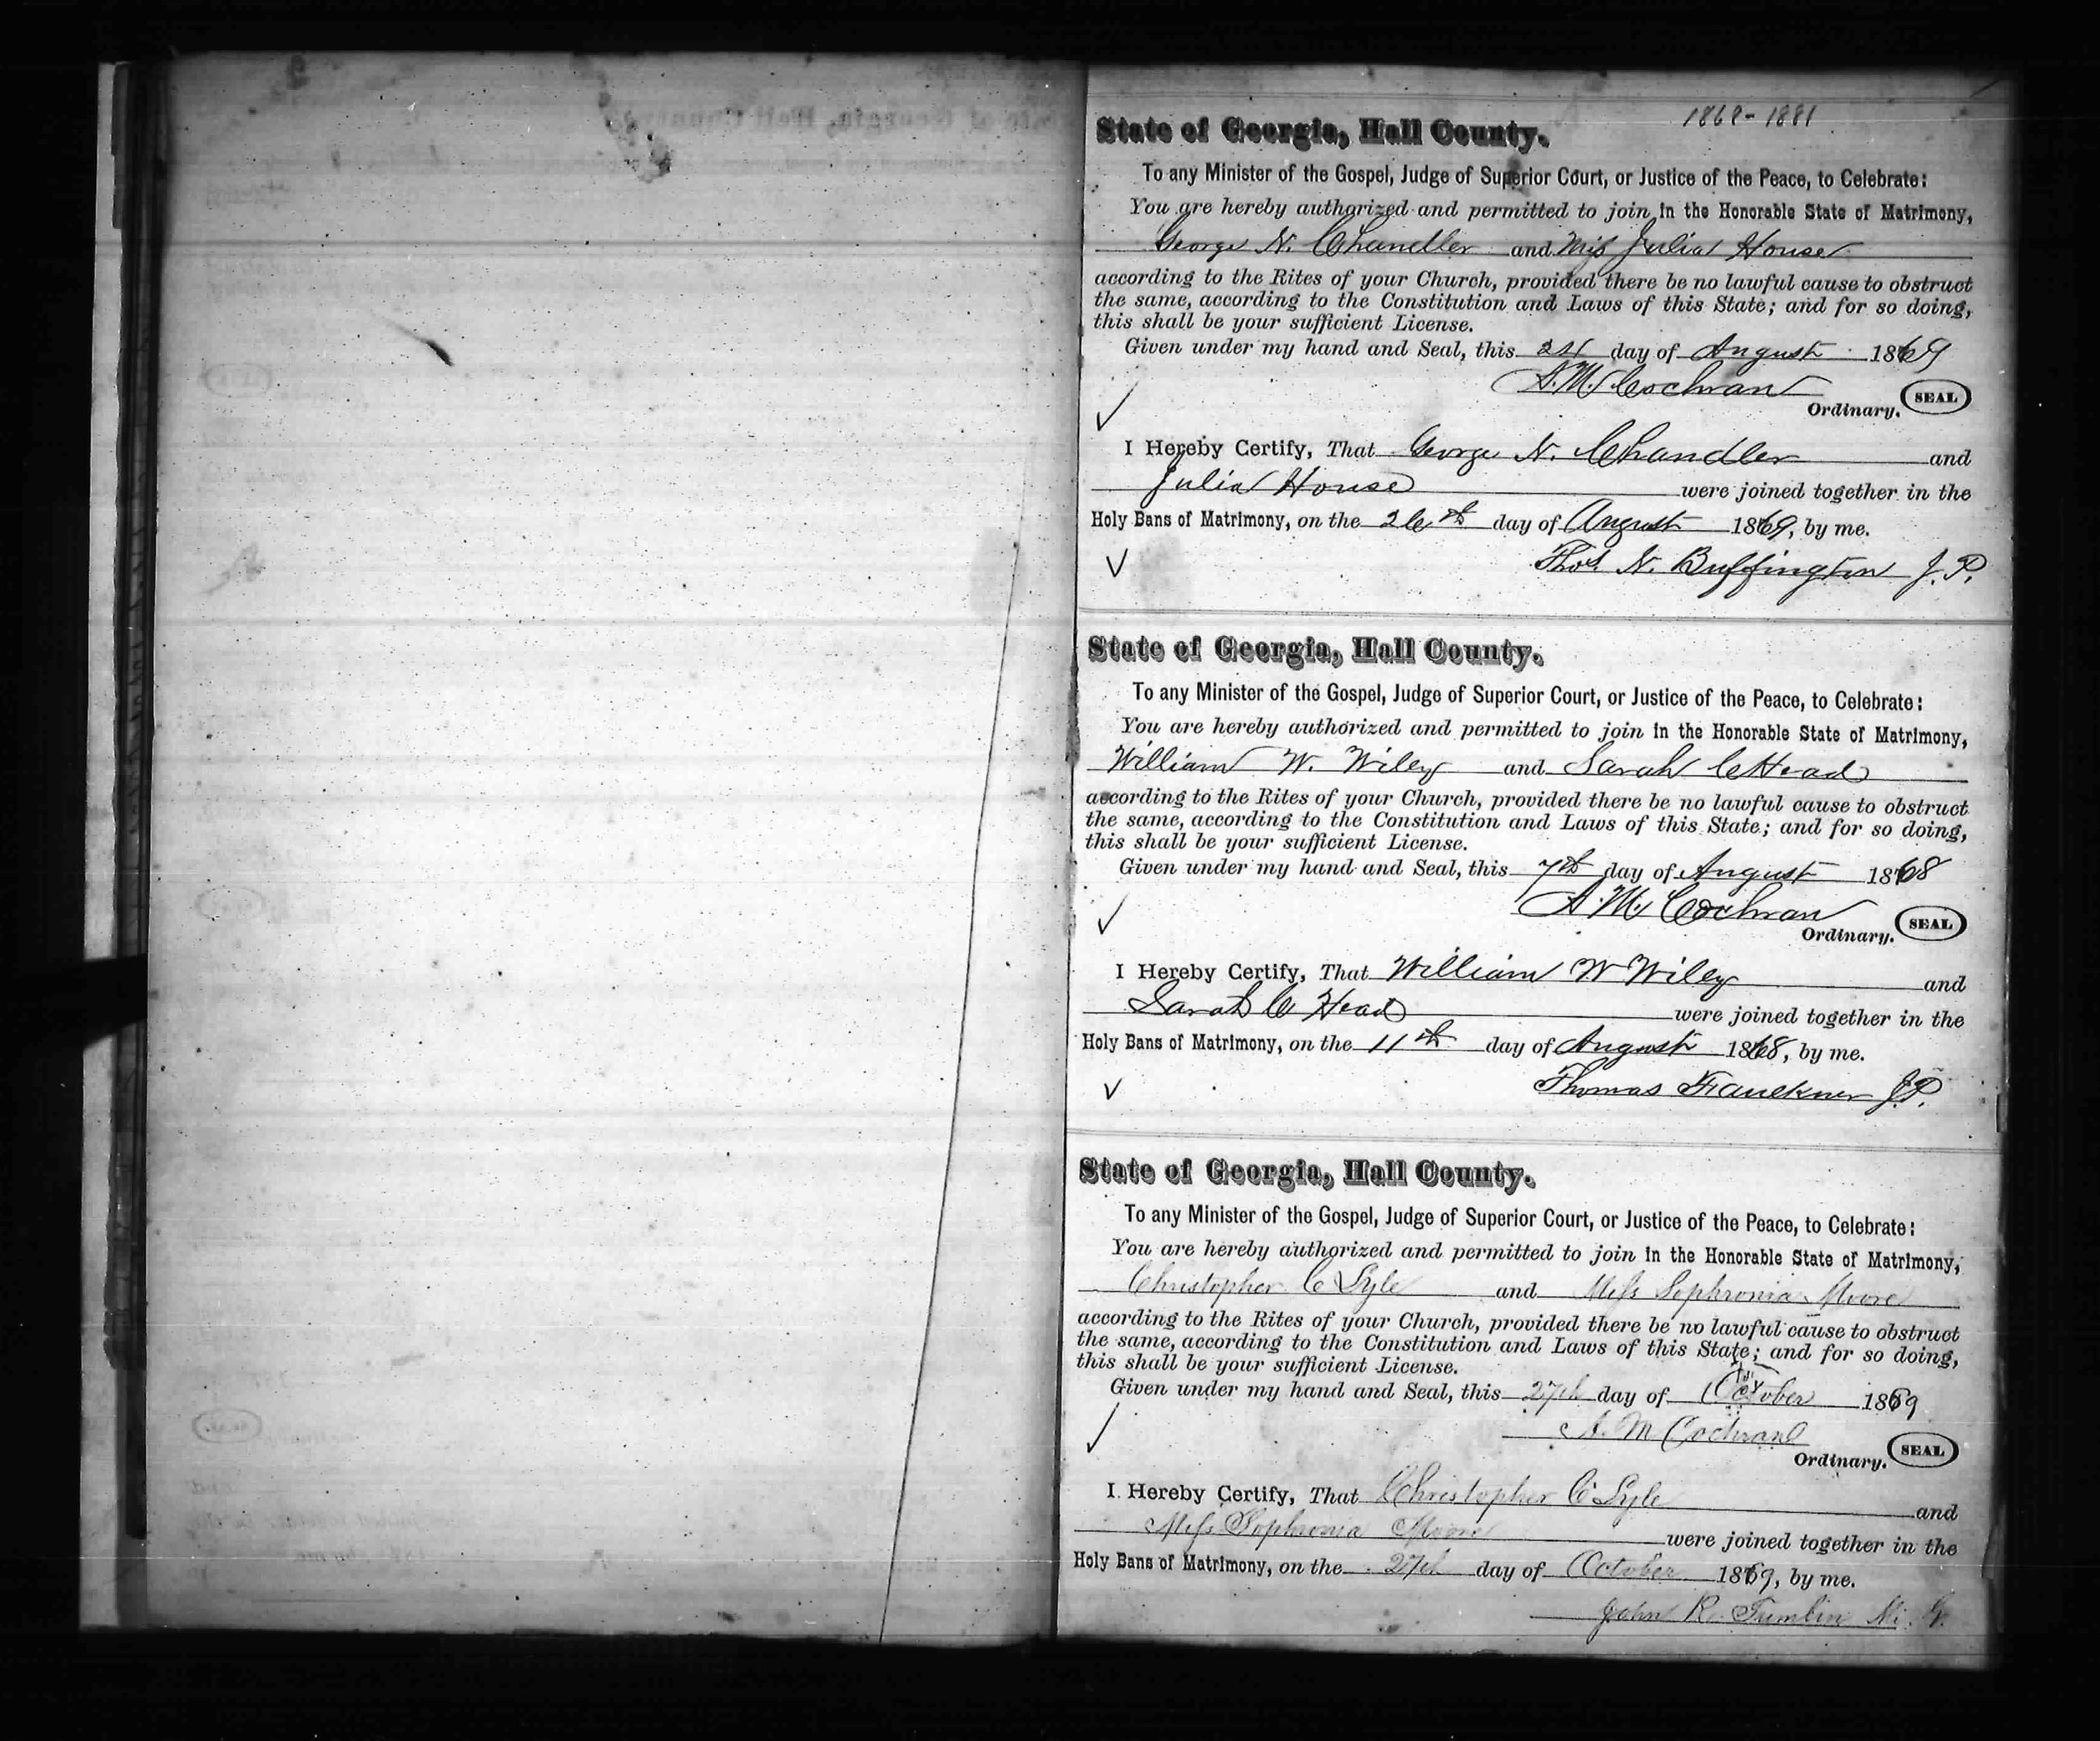 1868-1881
State of Georgia, Hall County.
To any Minister of the Gospel, Judge of Superior Court, or Justice of the Peace, to Celebrate:
You are hereby authorized and permitted to join in the Honorable State of Matrimony,
George N. Chandler and Miss Julia House
according to the Rites of your Church, provided there be no lawful cause to obstruct
the same, according to the Constitution and Laws of this State; and for so doing,
this shall be your sufficient License.
Given under my hand and Seal, this 21st day of August 1869
A. M. Cochran
Ordinary. SEAL
I Hereby Certify, That George N. Chandler and
Julia House were joined together in the
Holy Bans of Matrimony, on the 26th day of August 1869, by me.
Thos. N. Buffington J. P.
State of Georgia, Hall County.
To any Minister of the Gospel, Judge of Superior Court, or Justice of the Peace, to Celebrate:
You are hereby authorized and permitted to join in the Honorable State of Matrimony,
William W. Wiley and Sarah C Head
according to the Rites of your Church, provided there be no lawful cause to obstruct
the same, according to the Constitution and Laws of this State; and for so doing,
this shall be your sufficient License.
Given under my hand and Seal, this 7th day of August 1868
A. M. Cochran
Ordinary. SEAL
I Hereby Certify, That William W Wiley and
Sarah C Head were joined together in the
Holy Bans of Matrimony, on the 11th day of August 1868, by me.
Thomas Faulkner J.P.
State of Georgia, Hall County.
To any Minister of the Gospel, Judge of Superior Court, or Justice of the Peace, to Celebrate:
You are hereby authorized and permitted to join in the Honorable State of Matrimony,
Christopher C Lyle and Miss Sophronia Moore
according to the Rites of your Church, provided there be no lawful cause to obstruct
the same, according to the Constitution and Laws of this State; and for so doing,
this shall be your sufficient License.
Given under my hand and Seal, this 27th day of October 1869
A. M Cochran
Ordinary. SEAL
I Hereby Certify, That Christopher C Lyle and
Miss Sophronia Moore were joined together in the
Holy Bans of Matrimony, on the 27th day of October 1869, by me.
John R. Tumlin M. G.